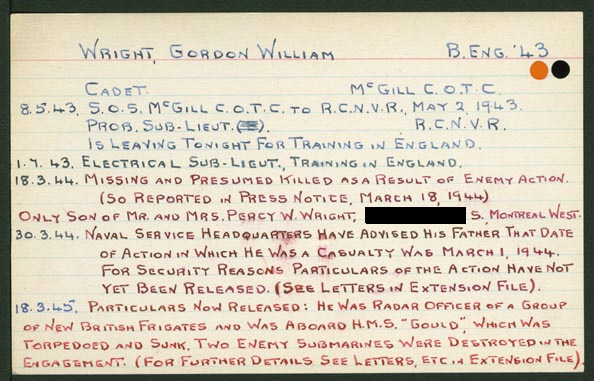 WRIGHT, GORDON WILLIAM B.ENG. '43
CADET. McGILL C.O.T.C.
8.5.43. S.O.S. McGILL C.O.T.C. TO R.C.N.V.R., MAY 2, 1943.
PROB. SUB-LIEUT. R.C.N.V.R.
IS LEAVING TONIGHT FOR TRAINING IN ENGLAND.
1.7.43. ELECTRICAL SUB-LIEUT., TRAINING IN ENGLAND.
18.3.44. MISSING AND PRESUMED KILLED AS A RESULT OF ENEMY ACTION.
(SO REPORTED IN PRESS NOTICE, MARCH 18, 1944)
ONLY SON OF MR. AND MRS. PERCY W. WRIGHT, S. MONTREAL WEST.
30.3.44. NAVAL SERVICE HEADQUARTERS HAVE ADVISED HIS FATHER THAT DATE
OF ACTION IN WHICH HE WAS A CASUALTY WAS MARCH 1, 1944.
FOR SECURITY REASONS PARTICULARS OF THE ACTION HAVE NOT
YET BEEN RELEASED. (SEE LETTERS IN EXTENSION FILE).
18.3.45. PARTICULARS NOW RELEASED: HE WAS RADAR OFFICER OF A GROUP
OF NEW BRITISH FRIGATES AND WAS ABOARD H.M.S. "GOULD", WHICH WAS
TORPEDOED AND SUNK. TWO ENEMY SUBMARINES WERE DESTROYED IN THE
ENGAGEMENT. (FOR FURTHER DETAILS SEE LETTERS, ETC IN EXTENSION FILE).